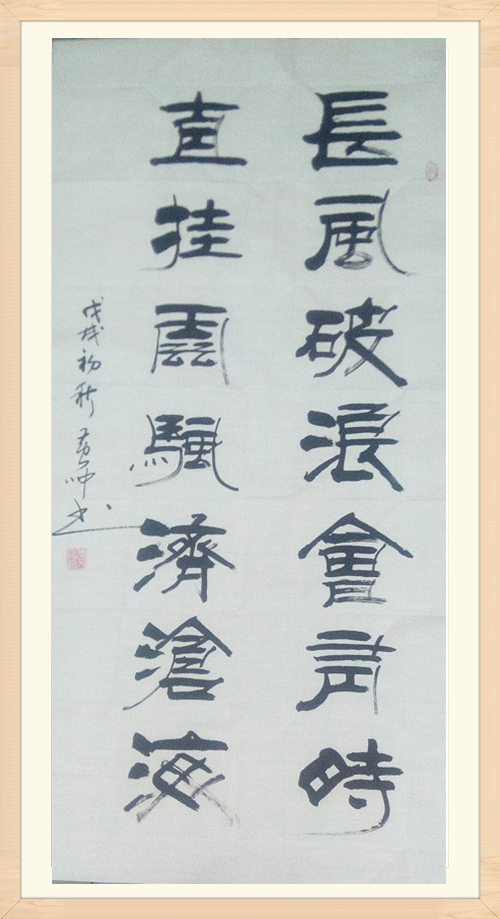 長風破浪會有時
直挂雲颿濟滄海
戊戌初秋 书